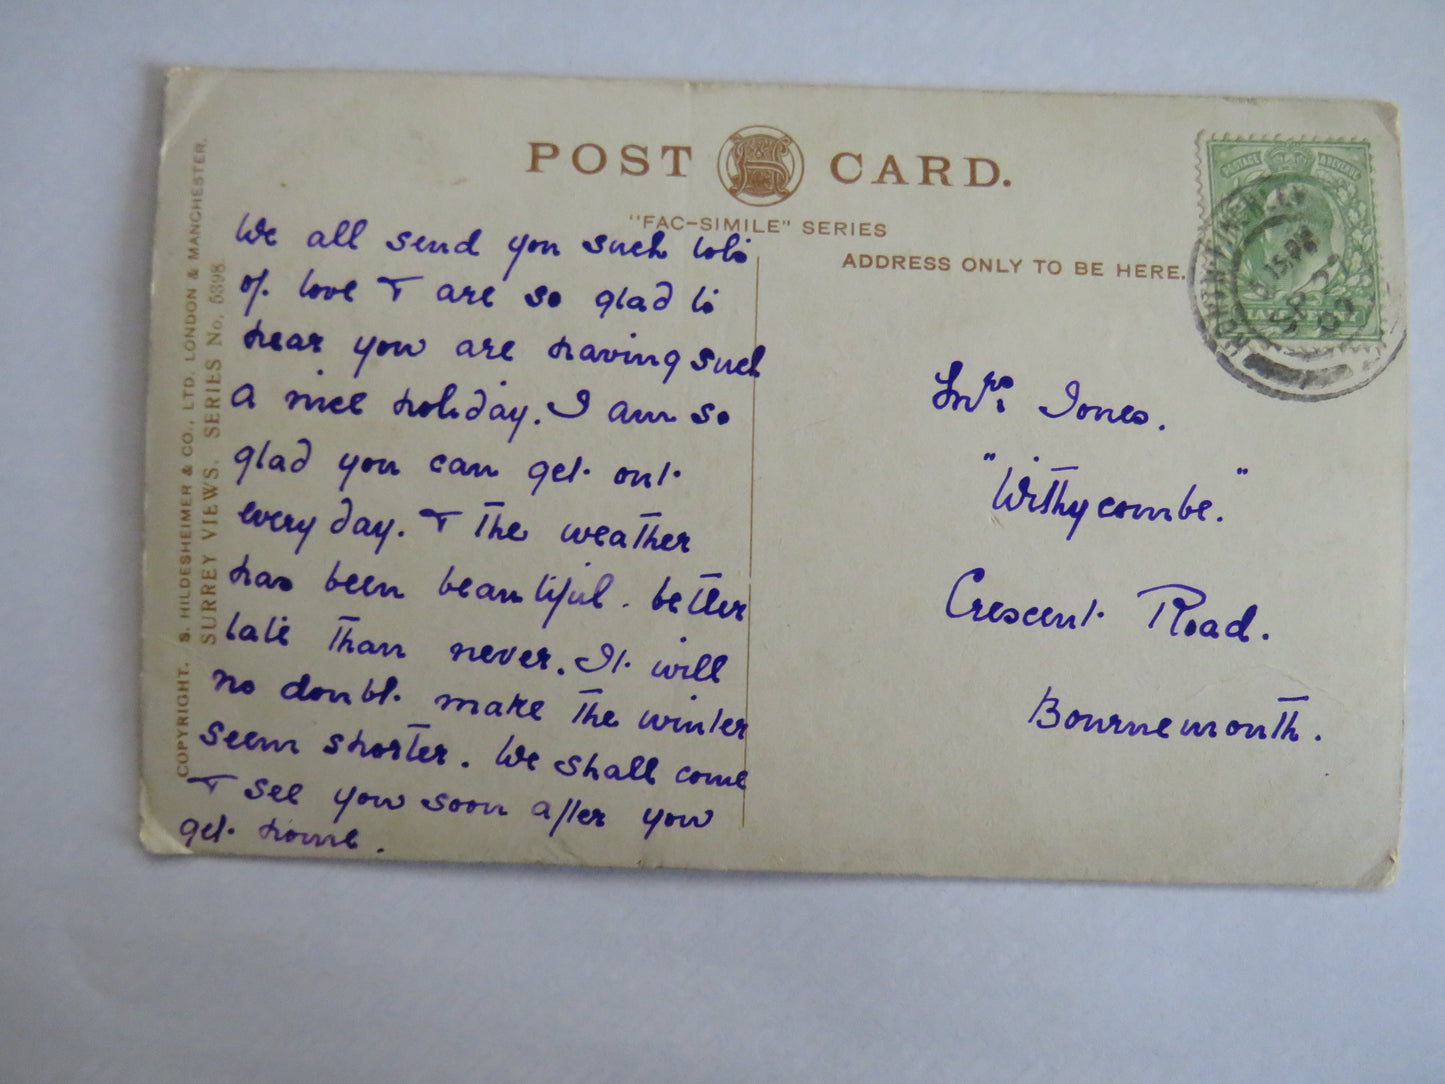 POST CARD.
"FAC-SIMILE" SERIES
ADDRESS ONLY TO BE HERE.
COPYRIGHT. S. HILDESHEIMER & CO., LTD. LONDON & MANCHESTER.
SURREY VIEWS. SERIES No. 5398.
We all send you such lots
of love & are so glad to
hear you are having such
a nice holiday. I am so
glad you can get out
every day. & the weather
has been beautiful. better
late than never. It will
no doubt make the winter
seem shorter. We shall come
& see you soon after you
get home.
POSTAGE REVENUE
SP 22
Mrs. Jones.
"Withycombe."
Crescent Road.
Bournemouth.